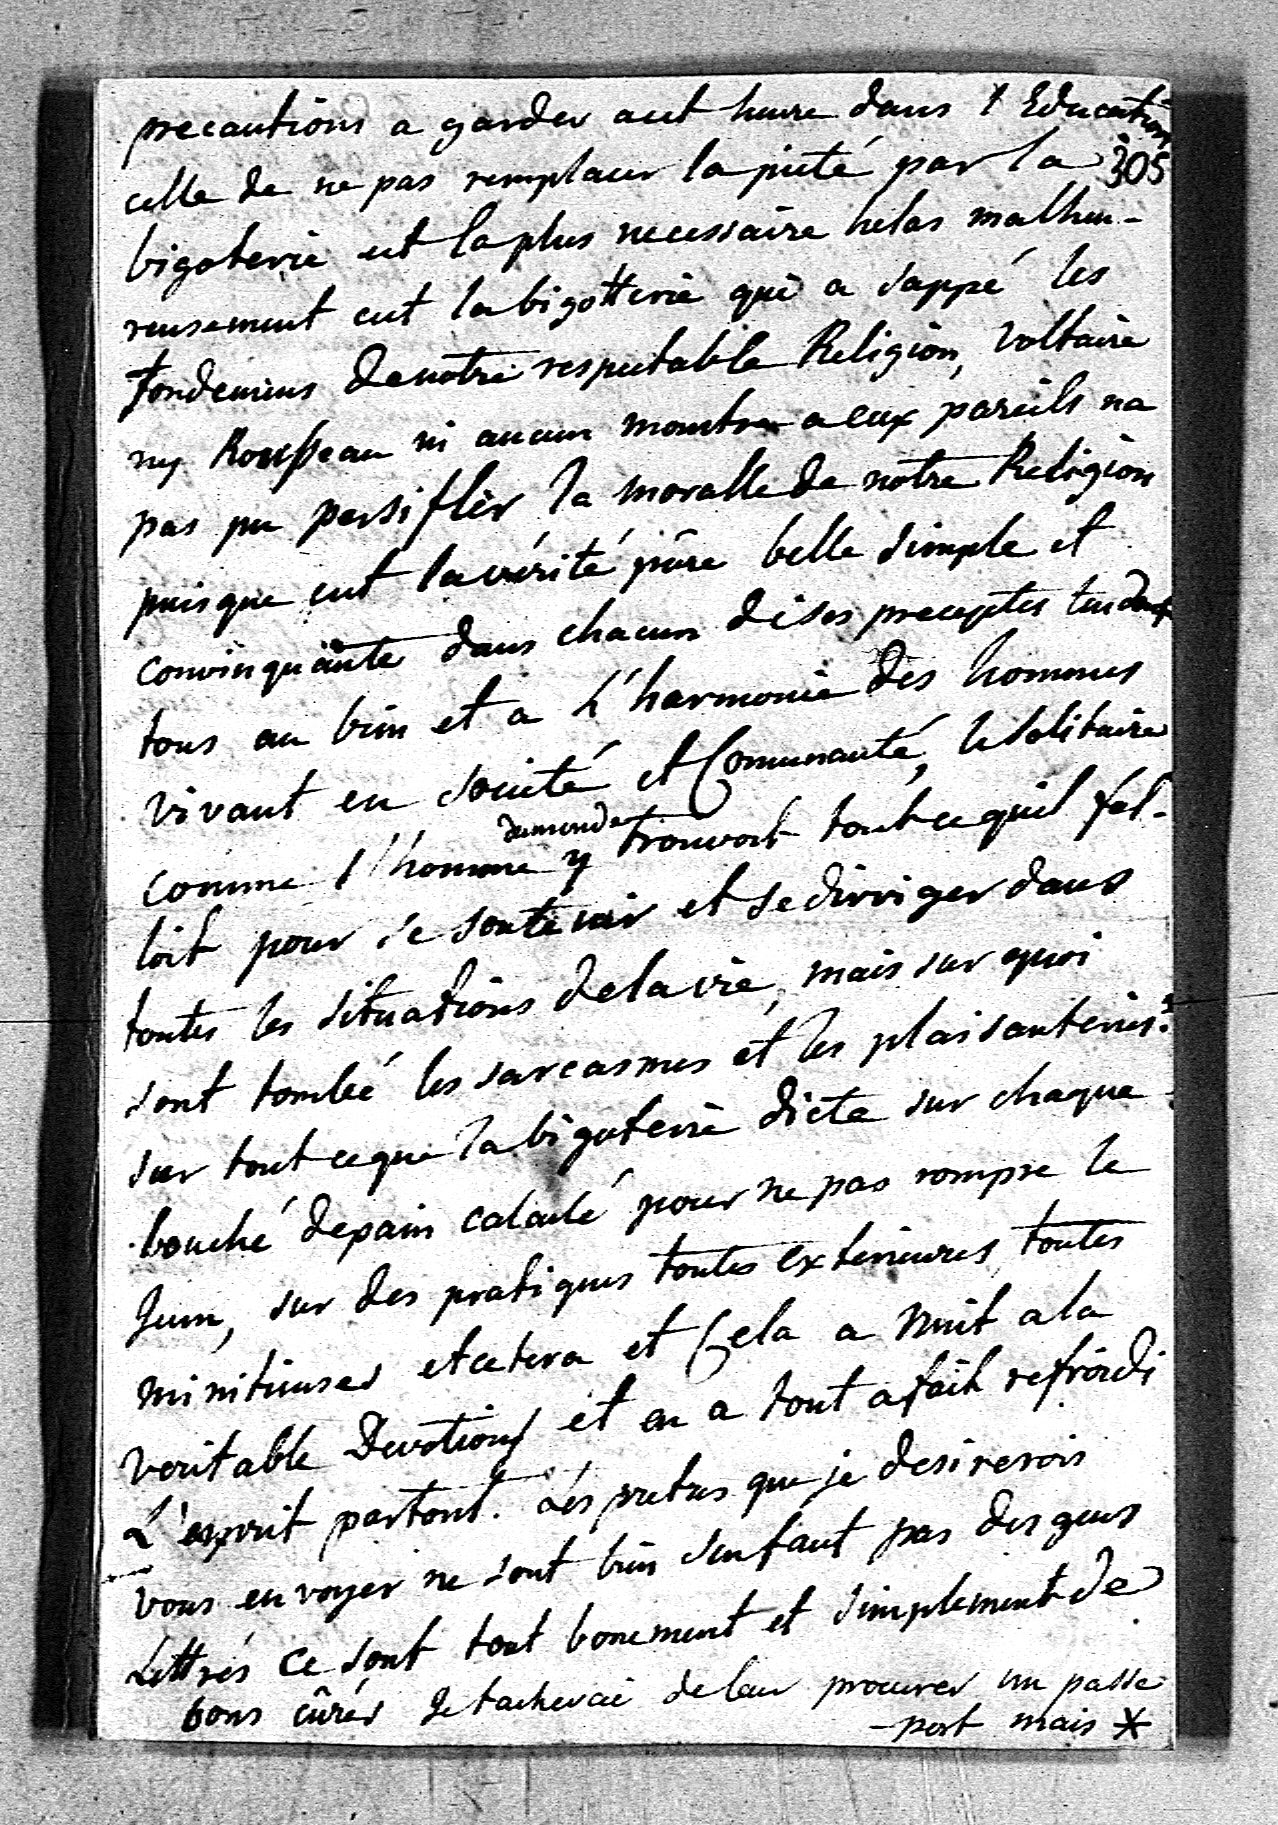 precautions a garder acet heure dans l'Education
305
celle de ne pas remplacer la pieté par la
bigoterie est la plus necessaire helas malheu-
reusement cest la bigotterie qui a sappé les
fondemens de notre respectable Religion, voltaire
ny Rousseau ni aucun monstre a eux pareils na
pas pu persifler la moralle de notre Religion
puisque cest la vérité pûre belle simple et
convinquante dans chacun de ses preceptes tendant
tous au bien et a L'harmonie des hommes
vivant en societé et Communauté, le solitaire
comme l'homme du monde y trouvoit tout ce quil fal-
loit pour se soutenir et se dirriger dans
toutes les situations de la vie, mais sur quoi
sont tombé les sarcasmes et les plaisanteries?
sur tout ce que la bigoterie dicte sur chaque
bouché de pain calculé pour ne pas rompre le
Jeun, sur des pratiques toutes exterieures, toutes
minitieuses etcetera et Cela a nuit a la
veritable Devotion et en a tout a fait refroidi
L'esprit partout. Les pretres que je desirerois
vous envoyer ne sont bien senfaut pas des gens
Lettrés ce sont tout bonement et simplement de
bons cûrés Je tacherai de leur procurer un passe
-port mais *